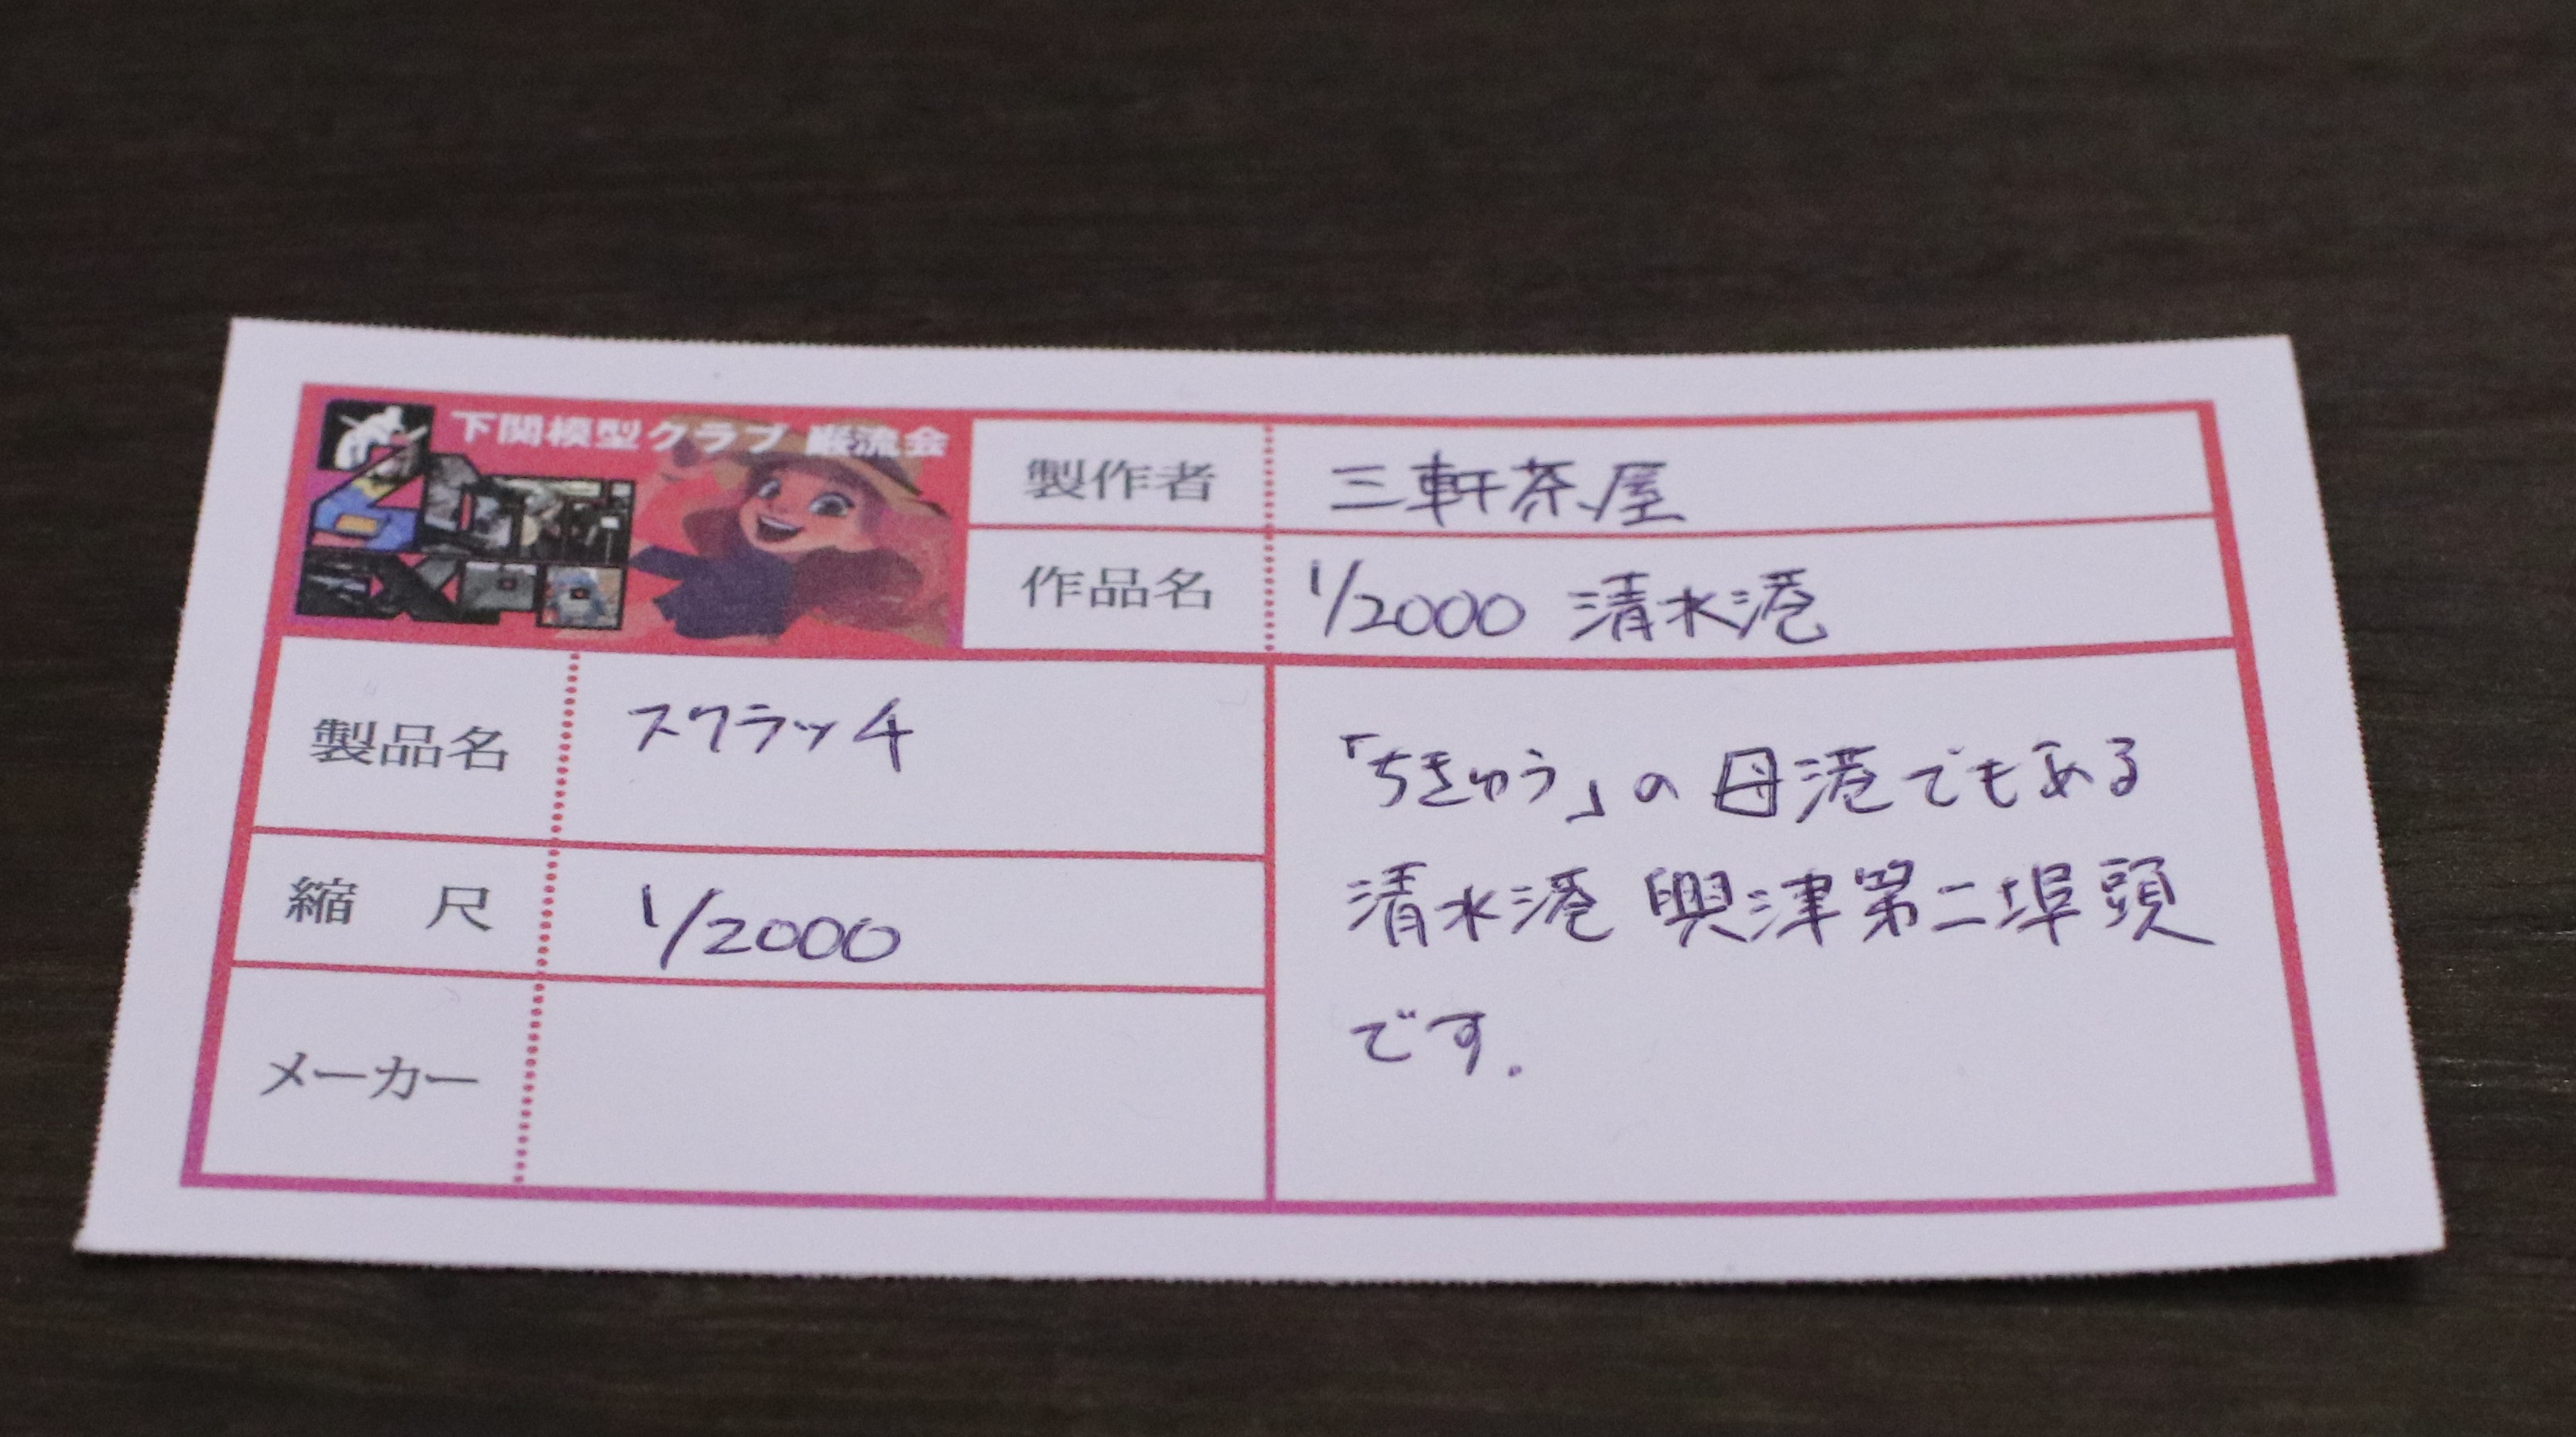 下関模型クラブ 巌流会
20th
EXPO
製作者 三軒茶屋
作品名 1/2000 清水港
製品名 スクラッチ
縮 尺 1/2000
メーカー
「ちきゅう」の母港でもある
清水港 興津第二埠頭
です.